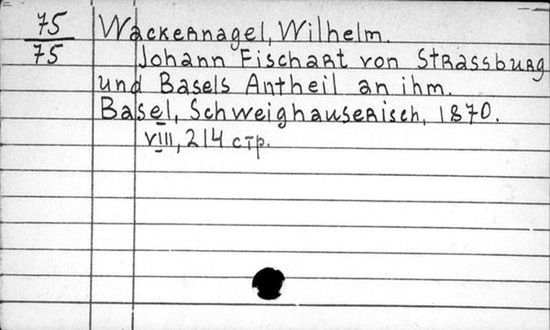 75
75
Wackernagel, Wilhelm.
Johann Fischart von Strassburg
und Basels Antheil an ihm.
Basel, Schweighauserisch, 1870.
VIII, 214 стр.